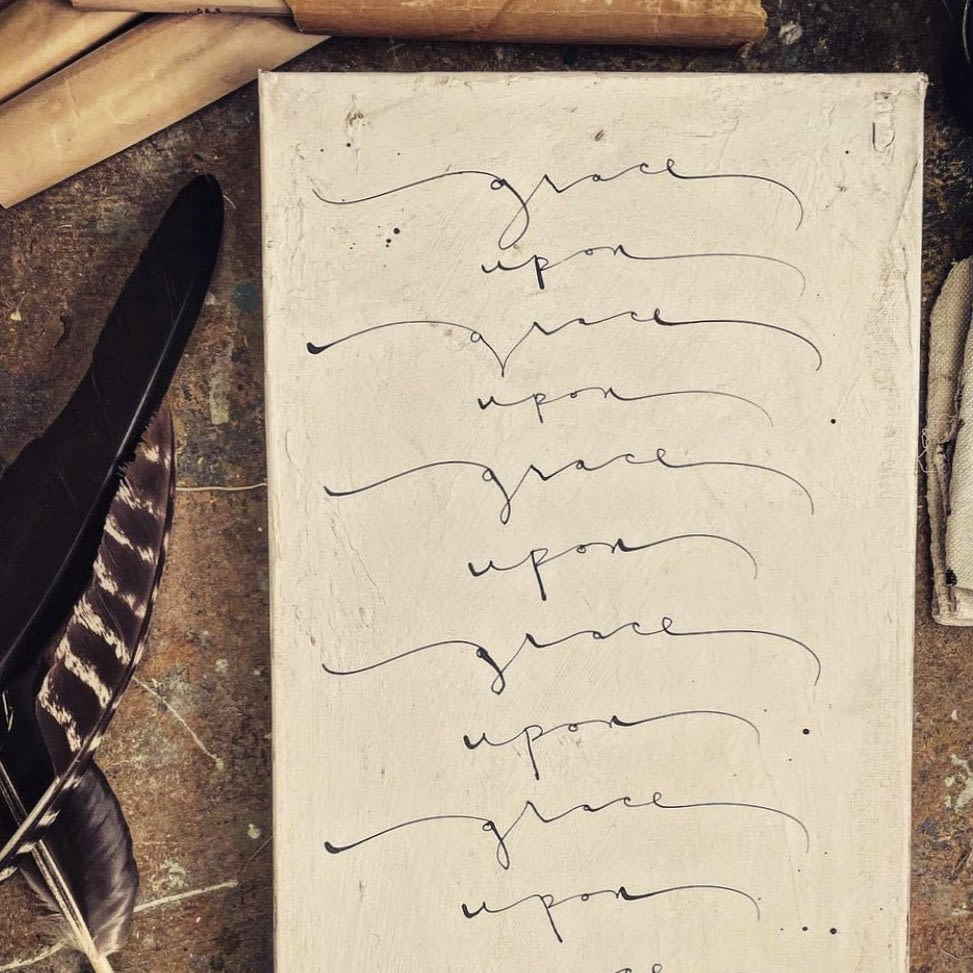 grace
upon
grace
upon
grace
upon
grace
upon
grace
upon